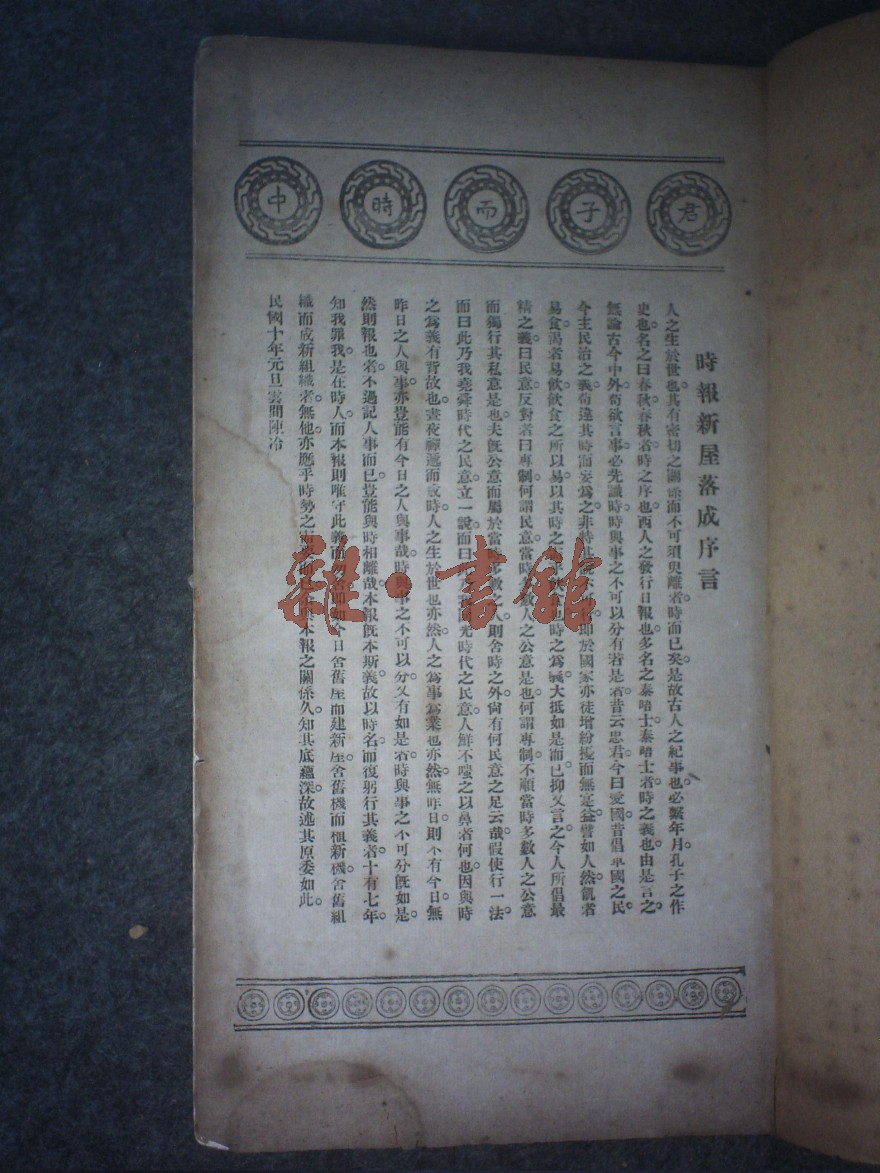 君子而時中
時報新屋落成序言
人之生於世也其有密切之關係而不可須臾離者時而已矣是故古人之紀事也必繫年月孔子之作
史也名之曰春秋春秋者時之序也西人之發行日報也多名之泰晤士泰晤士者時之義也由是言之
無論古今中外苟欲言事必先識時時與事之不可以分有若是者昔云忠君今曰愛國昔倡軍國之民
今主民治之義苟違其時而妄為之非特其即於國家亦徒增紛擾而無寔益譬如人然飢者
易食渴者易飲飲食之所以易以其時之也時之為義大抵如是而已抑又言之今人所倡最
精之義曰民意反對者曰專制何謂民意當時多數人之公意是也何謂專制不順當時多數人之公意
而獨行其私意是也夫既公意而屬於當時多數之人則舍時之外尙有何民意之足云哉假使行一法
而曰此乃我堯舜時代之民意立一說而曰光時代之民意人鮮不嗤之以鼻者何也因與時
之為義有背故也晝夜禪遞而成時人之生於世也亦然人之為事為業也亦然無昨日則不有今日無
昨日之人與事亦豈能有今日之人與事哉時與事之不可以分又有如是者時與事之不可分既如是
然則報也者不過記人事而已豈能與時相離哉本報既本斯義故以時名而復躬行其義者十有七年
知我罪我是在時人而本報則唯守此義而勿舍即如今日舍舊屋而建新屋舍舊機而置新機舍舊組
織而成新組織者無他亦應乎時勢之需要而已余與本報之關係久知其底蘊深故述其原委如此
民國十年元旦雲間陳冷
雜·書館